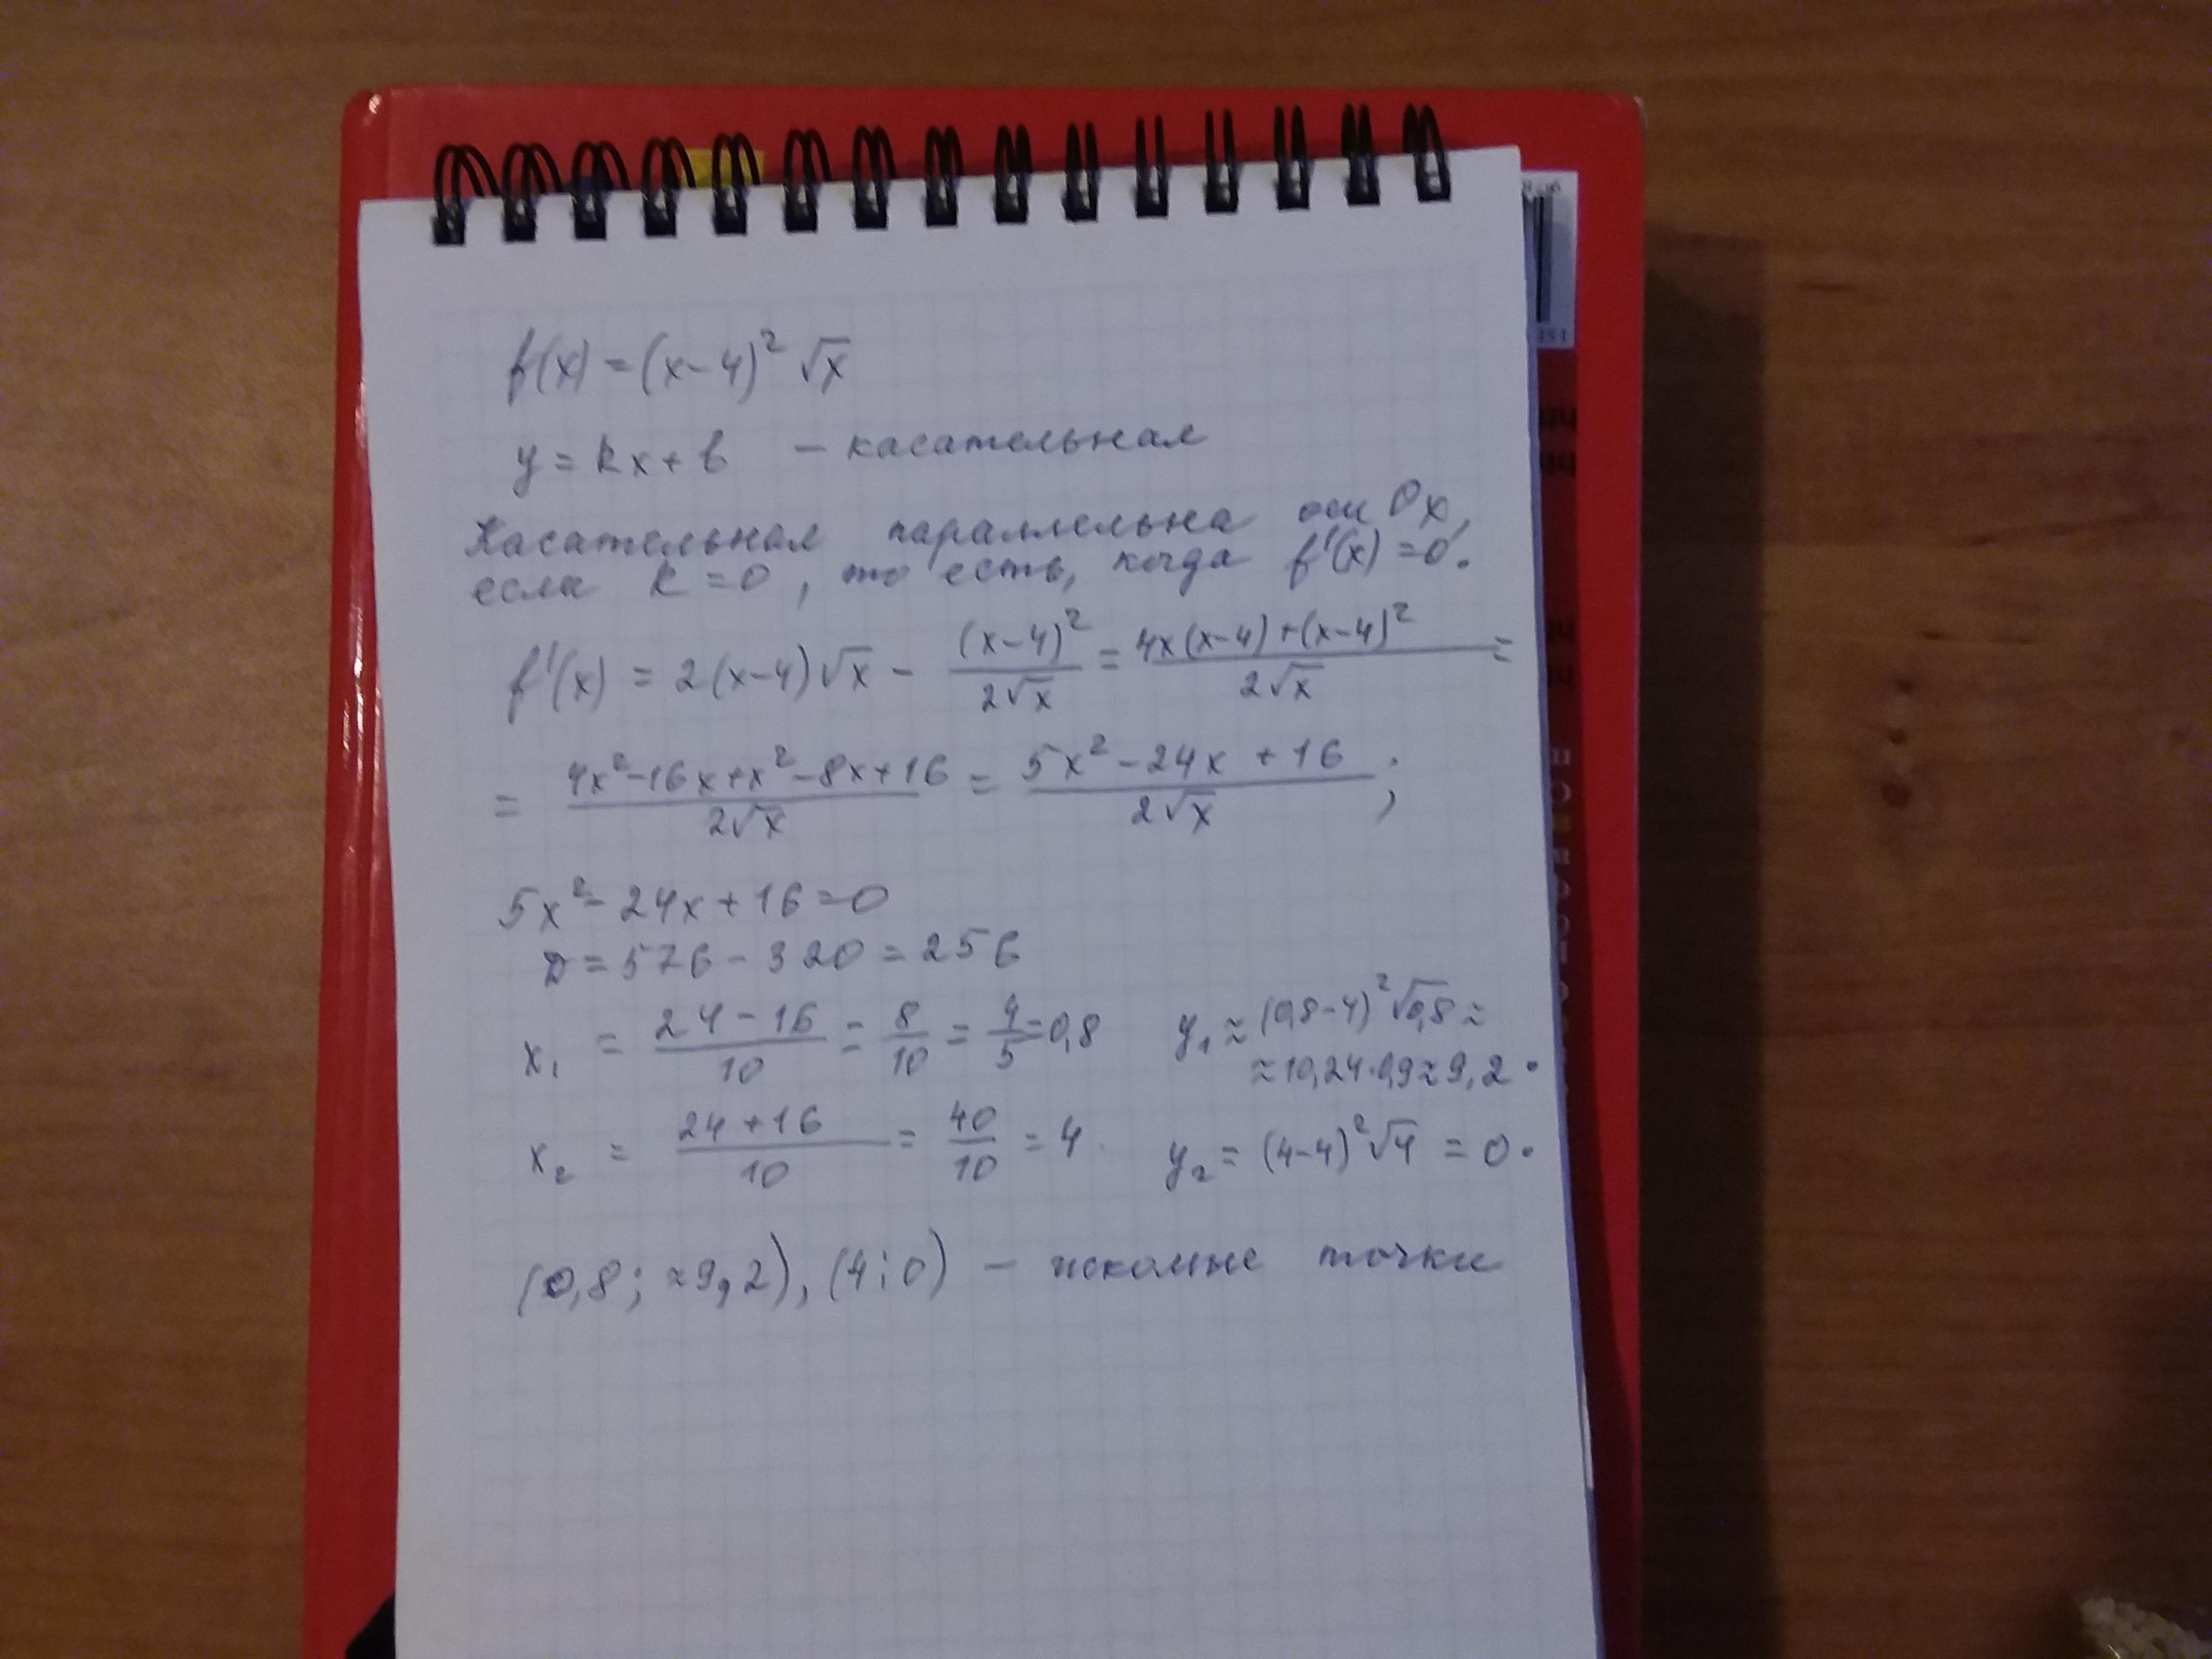 f(x) = (x-4)² √x
y = kx + b – касательная
Касательная параллельна оси Ox,
если k = 0, то есть, когда f'(x) = 0.
f'(x) = 2(x-4)√x - (x-4)²/2√x = 4x(x-4)+(x-4)²/2√x =
= 4x²-16x+x²-8x+16/2√x = 5x²-24x+16/2√x ;
5x²-24x+16=0
D = 576 - 320 = 256
x₁ = 24-16/10 = 8/10 = 4/5 = 0,8 y₁ ≈ (0,8-4)²√0,8 ≈
≈ 10,24·0,9 ≈ 9,2.
x₂ = 24+16/10 = 40/10 = 4. y₂ = (4-4)²√4 = 0.
(0,8; ≈9,2), (4;0) – искомые точки